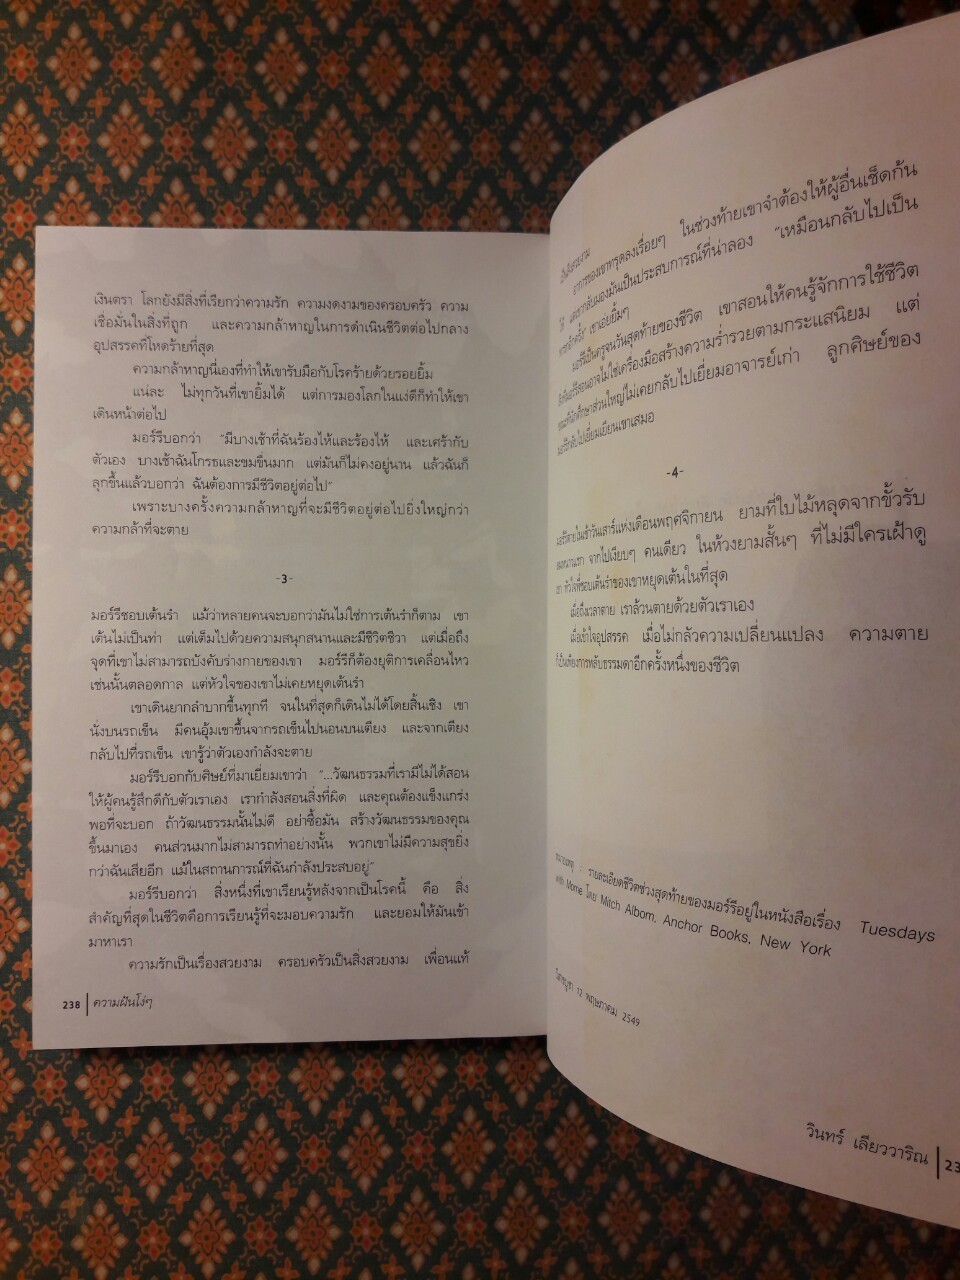 เงินตรา โลกยังมีสิ่งที่เรียกว่าความรัก ความงดงามของครอบครัว ความ
เชื่อมั่นในสิ่งที่ถูก และความกล้าหาญในการดำเนินชีวิตต่อไปกลาง
อุปสรรคที่โหดร้ายที่สุด
ความกล้าหาญนี่เองที่ทำให้เขารับมือกับโรคร้ายด้วยรอยยิ้ม
แน่ละ ไม่ทุกวันที่เขายิ้มได้ แต่การมองโลกในแง่ดีก็ทำให้เขา
เดินหน้าต่อไป
มอร์รีบอกว่า "มีบางเช้าที่ฉันร้องไห้และร้องไห้ และเศร้ากับ
ตัวเอง บางเช้าฉันโกรธและขมขื่นมาก แต่มันก็ไม่คงอยู่นาน แล้วฉันก็
ลุกขึ้นแล้วบอกว่า ฉันต้องการมีชีวิตอยู่ต่อไป"
เพราะบางครั้งความกล้าหาญที่จะมีชีวิตอยู่ต่อไปยิ่งใหญ่กว่า
ความกล้าที่จะตาย
-3-
มอร์รีชอบเต้นรำ แม้ว่าหลายคนจะบอกว่ามันไม่ใช่การเต้นรำก็ตาม เขา
เต้นไม่เป็นท่า แต่เต็มไปด้วยความสนุกสนานและมีชีวิตชีวา แต่เมื่อถึง
จุดที่เขาไม่สามารถบังคับร่างกายของเขา มอร์รีก็ต้องยุติการเคลื่อนไหว
เช่นนั้นตลอดกาล แต่หัวใจของเขาไม่เคยหยุดเต้นรำ
เขาเดินยากลำบากขึ้นทุกที จนในที่สุดก็เดินไม่ได้โดยสิ้นเชิง เขา
นั่งบนรถเข็น มีคนอุ้มเขาขึ้นจากรถเข็นไปนอนบนเตียง และจากเตียง
กลับไปที่รถเข็น เขารู้ว่าตัวเองกำลังจะตาย
มอร์รีบอกกับศิษย์ที่มาเยี่ยมเขาว่า "...วัฒนธรรมที่เรามีไม่ได้สอน
ให้ผู้คนรู้สึกดีกับตัวเราเอง เรากำลังสอนสิ่งที่ผิด และคุณต้องแข็งแกร่ง
พอที่จะบอก ถ้าวัฒนธรรมนั้นไม่ดี อย่าซื้อมัน สร้างวัฒนธรรมของคุณ
ขึ้นมาเอง คนส่วนมากไม่สามารถทำอย่างนั้น พวกเขาไม่มีความสุขยิ่ง
กว่าฉันเสียอีก แม้ในสถานการณ์ที่ฉันกำลังประสบอยู่"
มอร์รีบอกว่า สิ่งหนึ่งที่เขาเรียนรู้หลังจากเป็นโรคนี้ คือ สิ่ง
สำคัญที่สุดในชีวิตคือการเรียนรู้ที่จะมอบความรัก และยอมให้มันเข้า
มาหาเรา
ความรักเป็นเรื่องสวยงาม ครอบครัวเป็นสิ่งสวยงาม เพื่อนแท้
238 ความฝันโง่ๆ
เป็นสิ่งสวยงาม
อาการของเขาทรุดลงเรื่อยๆ ในช่วงท้ายเขาจำต้องให้ผู้อื่นเช็ดก้น
ให้ แต่เขากลับมองมันเป็นประสบการณ์ที่น่าลอง "เหมือนกลับไปเป็น
ทารกอีกครั้ง" เขาเอ่ยยิ้มๆ
มอร์รีเป็นครูจนวันสุดท้ายของชีวิต เขาสอนให้คนรู้จักการใช้ชีวิต
สิ่งที่มอร์รีสอนอาจไม่ใช่เครื่องมือสร้างความร่ำรวยตามกระแสนิยม แต่
ขณะที่นักศึกษาส่วนใหญ่ไม่เคยกลับไปเยี่ยมอาจารย์เก่า ลูกศิษย์ของ
มอร์รีกลับไปเยี่ยมเยียนเขาเสมอ
-4-
มอร์รีตายในเช้าวันเสาร์แห่งเดือนพฤศจิกายน ยามที่ใบไม้หลุดจากขั้วรับ
ลมหนาวแรก จากไปเงียบๆ คนเดียว ในห้วงยามสั้นๆ ที่ไม่มีใครเฝ้าดู
เขา หัวใจที่ชอบเต้นรำของเขาหยุดเต้นในที่สุด
เมื่อถึงเวลาตาย เราล้วนตายด้วยตัวเราเอง
เมื่อเข้าใจอุปสรรค เมื่อไม่กลัวความเปลี่ยนแปลง ความตาย
ก็เป็นเพียงการหลับธรรมดาอีกครั้งหนึ่งของชีวิต
หมายเหตุ : รายละเอียดชีวิตช่วงสุดท้ายของมอร์รีอยู่ในหนังสือเรื่อง Tuesdays
with Morrie โดย Mitch Albom, Anchor Books, New York
วิสาขบูชา 12 พฤษภาคม 2549
วินทร์ เลียววาริณ 23